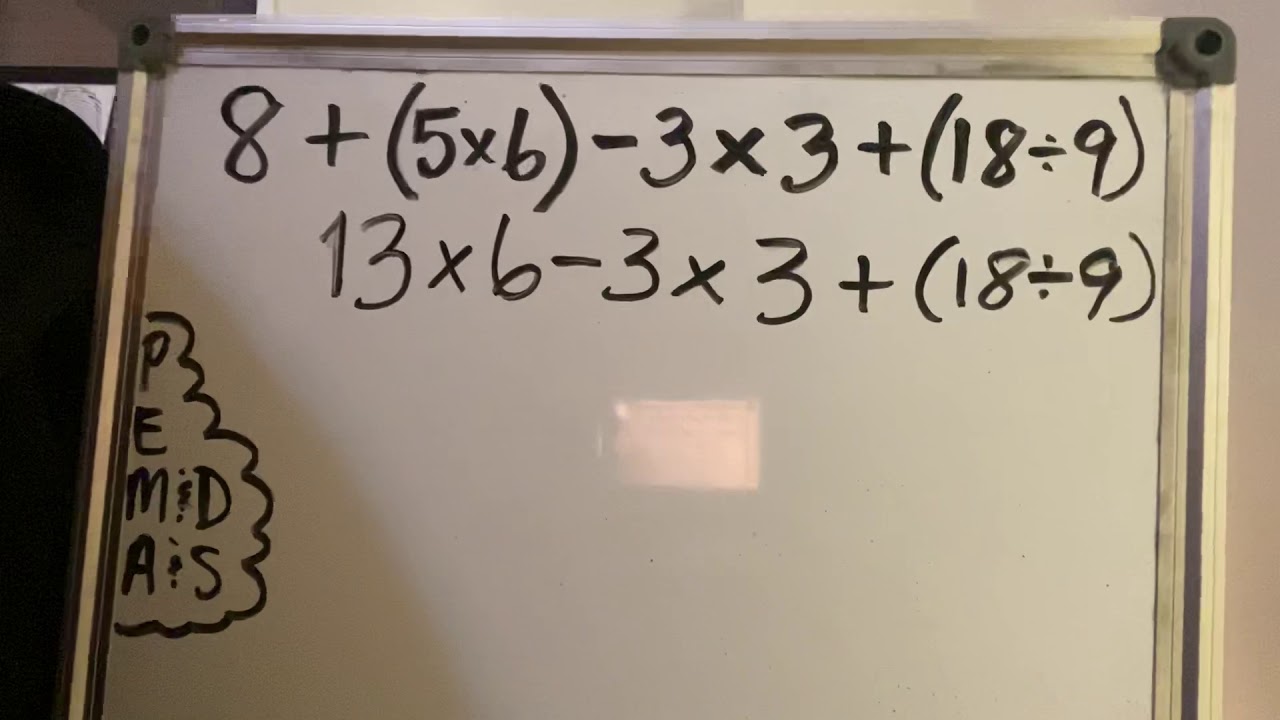 8 + (5×6) - 3 × 3 + (18÷9)
13 × 6 - 3 × 3 + (18÷9)
P
E
M&D
A&S